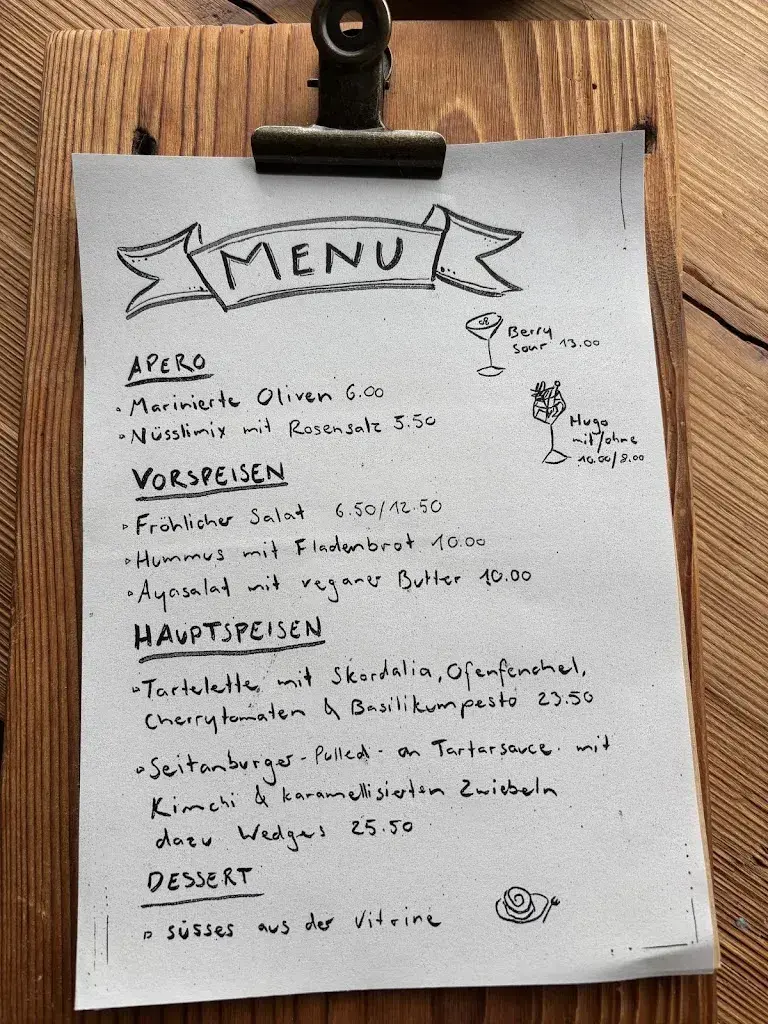 MENU
Berry
sour 13.00
APERO
Marinierte Oliven 6.00
Nüsslimix mit Rosensalz 5.50
Hugo
mit/ohne
10.00/8.00
VORSPEISEN
Fröhlicher Salat 6.50/12.50
Hummus mit Fladenbrot 10.00
Ayasalat mit veganer Butter 10.00
HAUPTSPEISEN
Tartelette mit Skordalia, Ofenfenchel,
Cherrytomaten & Basilikumpesto 23.50
Seitanburger-Pulled- an Tartarsauce mit
Kimchi & karamellisierten Zwiebeln
dazu Wedges 25.50
DESSERT
süsses aus der Vitrine